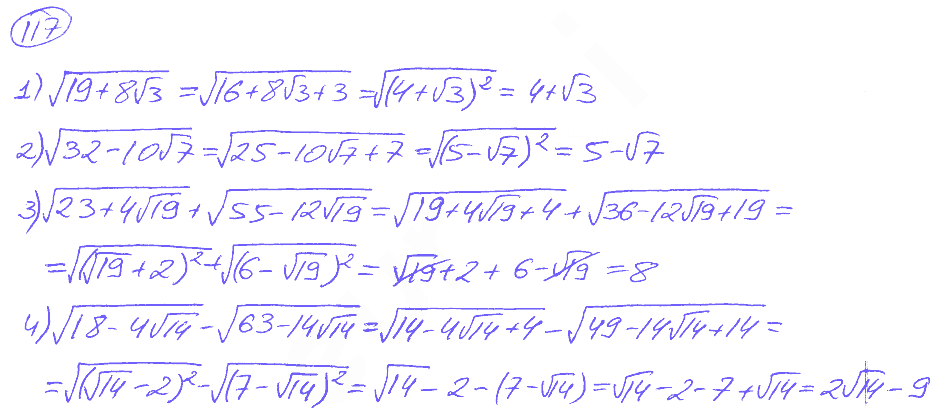 117
1) √(19+8√3) = √(16+8√3+3) = √((4+√3)²) = 4+√3
2) √(32-10√7) = √(25-10√7+7) = √((5-√7)²) = 5-√7
3) √(23+4√19) + √(55-12√19) = √(19+4√19+4) + √(36-12√19+19) =
= √((√19+2)²) + √((6-√19)²) = √19+2+6-√19 = 8
4) √(18-4√14) - √(63-14√14) = √(14-4√14+4) - √(49-14√14+14) =
= √((√14-2)²) - √((7-√14)²) = √14-2-(7-√14) = √14-2-7+√14 = 2√14-9